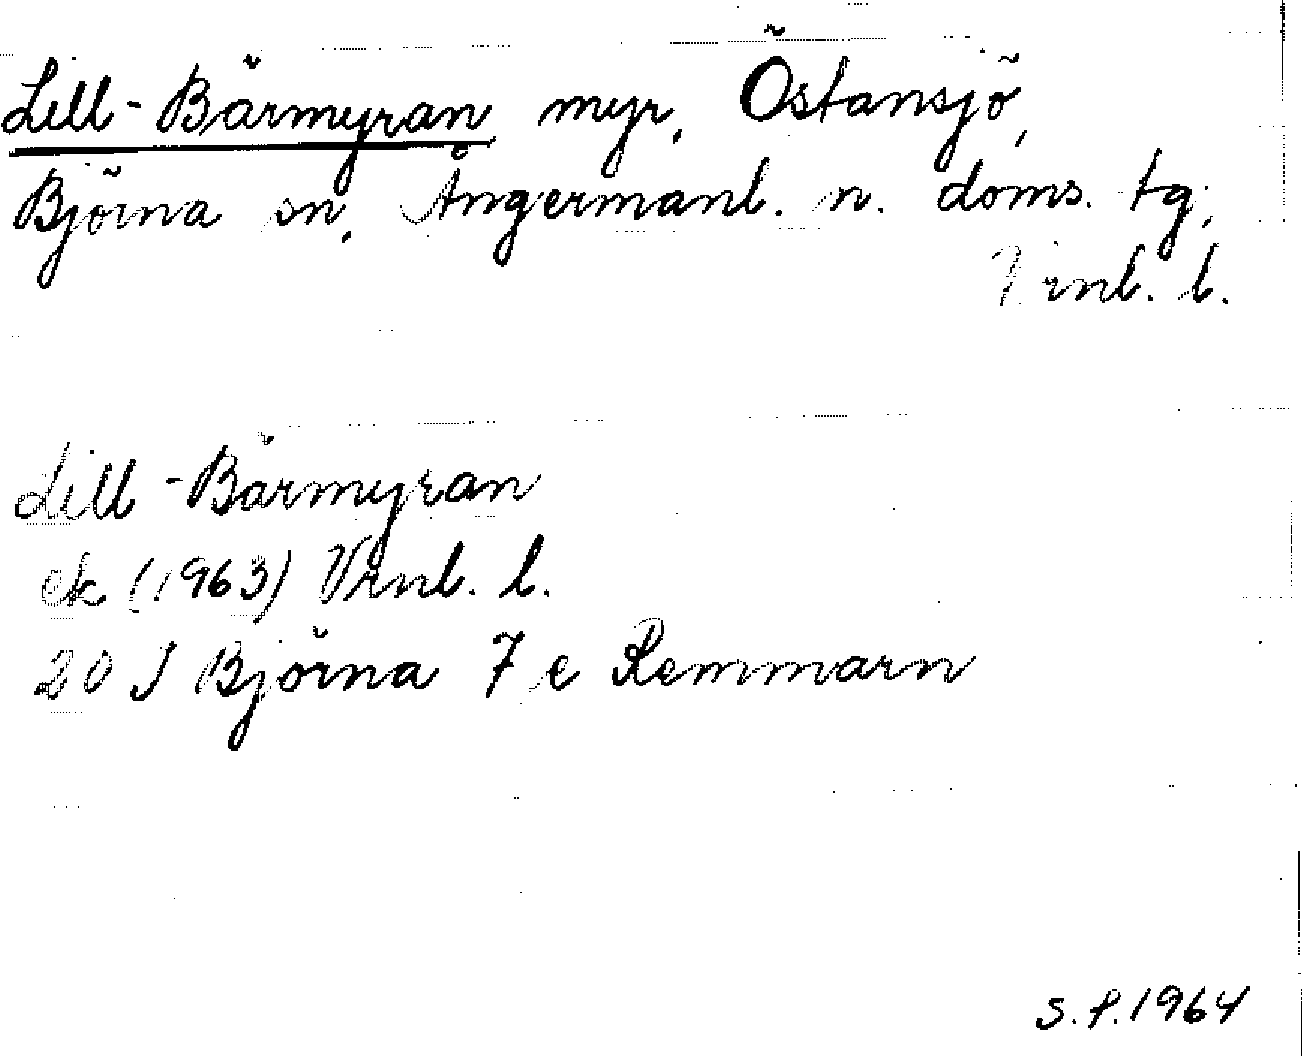 Lill-Bärmyran, myr, Östansjö,
Björna sn, Ångermanl. n. doms. tg,
Vrnl. l.
Lill-Bärmyran
ek (1963) Vrnl. l.
20 J Björna 7 e Remmarn
S.P. 1964